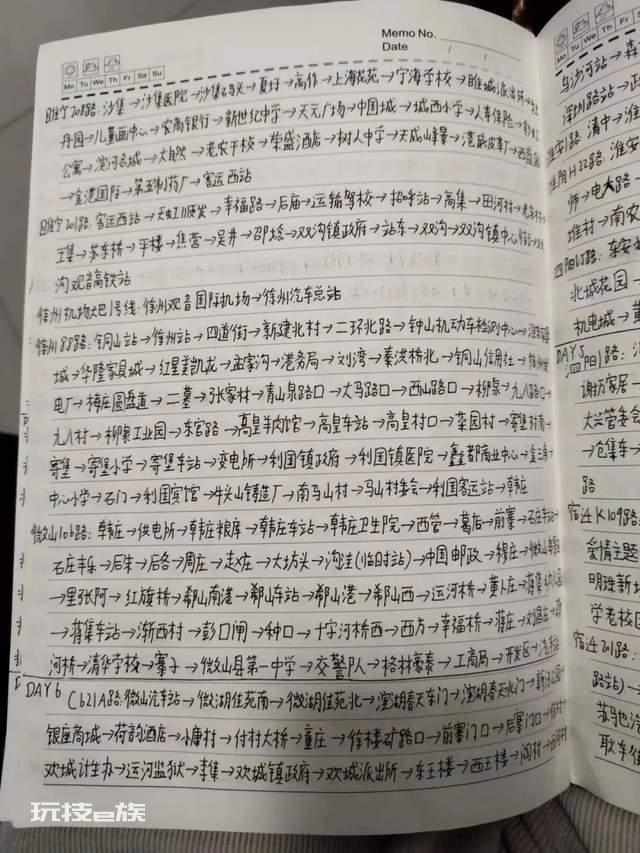 Memo No.
Date / /
Mo Tu We Th Fr Sa Su
睢宁208路: 沙集→沙集医院→沙集码头→夏圩→高作→上海花苑→宁海学校→睢城派出所→
丹园→儿童画中心→农商银行→新世纪中学→天元广场→中国城→城西小学→人寿保险→
公寓→滨河名城→大自然→老农干校→荣盛酒店→树人中学→天成山峰景→港威皮革厂→
→金港国际→第五制药厂→客运西站
睢宁201路: 客运西站→天虹→幸福路→后庙→运输驾校→招呼站→高集→田河村→
王集→苏东桥→平楼→焦营→吴井→邵塔→双沟镇政府→站东→双沟→双沟镇中心
沟→观音高铁站
徐州机场大巴1号线: 徐州观音国际机场→徐州汽车总站
徐州88路: 铜山站→徐州站→四道街→新建北村→二环北路→钟山机动车检测中心→
城→华隆家具城→红星美凯龙→孟家沟→港务局→刘湾→秦洪桥北→铜山信用社→
电厂→梅庄圆盘道→二墓→张家林→青山泉路口→大马路口→西山路口→柳泉→九八路口→
九八村→柳泉工业园→东官路→高皇羊肉馆→高皇车站→高皇村口→栾园村→寄堡村南→
寄堡→寄堡小学→寄堡车站→变电所→利国镇政府→利国镇医院→鑫都商业中心→
中心小学→石门→利国宾馆→牛头山铸造厂→南马山村→马山村委会→利国客运站→韩庄
微山106路: 韩庄→供电所→韩庄粮库→韩庄车站→韩庄卫生院→西管→葛店→前寨→
石庄丰乐→后朱→后各→周庄→赵庄→大坊头→沟洼(临时站)→中国邮政→穆庄→
→里张阿→红旗桥→郗山南港→郗山车站→郗山港→郗山西→运河桥→黄卜庄→
→蒋集车站→渐西村→彭口闸→种口→十字河桥西→西方→幸福桥→蒋庄→刘昌庄→
河桥→清华学校→寨子→微山县第一中学→交警队→格林豪泰→工商局→开发区→
DAY 6
C621A路: 微山汽车站→微湖佳苑南→微湖佳苑北→澎湖春天东门→澎湖春天北门→
银座商城→荷韵酒店→小康村→付村大桥→董庄→徐楼矿路口→前寨门口→后寨门口→
欢城计生办→运河监狱→李集→欢城镇政府→欢城派出所→车王楼→西王楼→阎村→
乌沙河站→森
深圳路站→
淮安1路: 清中→淮
淮阴H22路: 淮安
师→电大路→
堆村→南农
泗阳15路: 东安
北城花园→
机电城→黄
DAY5
1路:
谢坊家居
大兴管委会
→仓集车→
路
宿迁K109路:
爱情主题
明珠新
学老校区
宿迁201路:
路站)→
苏马
耿车住
玩技e族